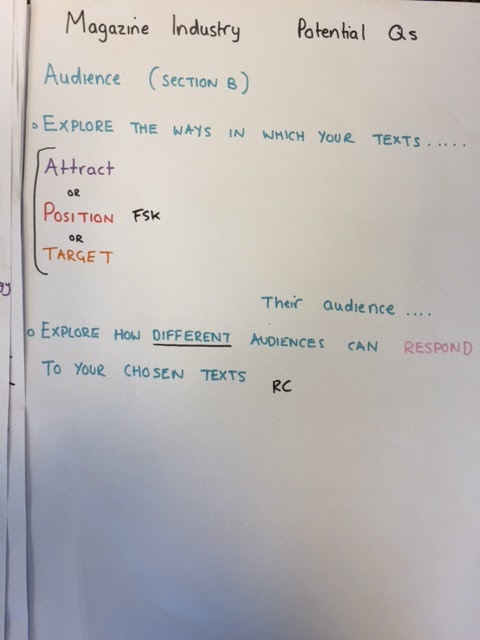 Magazine Industry Potential Qs
Audience (Section B)
Explore the ways in which your texts.....
Attract
or
Position FSK
or
Target
Their audience ....
Explore how different audiences can respond
to your chosen texts RC